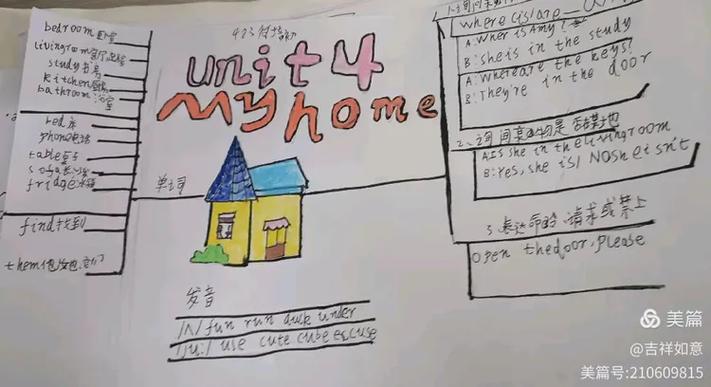 bedroom 卧室
livingroom 客厅
study 书房
kitchen 厨房
bathroom 浴室
bed 床
phone 电话
table 桌子
sofa 长沙发
fridge 冰箱
find 找到
them
单词
unit 4
My home
发音
/ʌ/ fun run duck under
/ju:/ use cute cube excuse
where is/are
A: Wher is Amy?
B: she is in the study
A: Where are the keys?
B: They're in the door
2、询问某物是否在某地
A: Is she in the livingroom
B: Yes, she is/ No she isn't
3、表达命令、请求或禁止
Open thedoor, please
美篇
@吉祥如意
美篇号:210609815